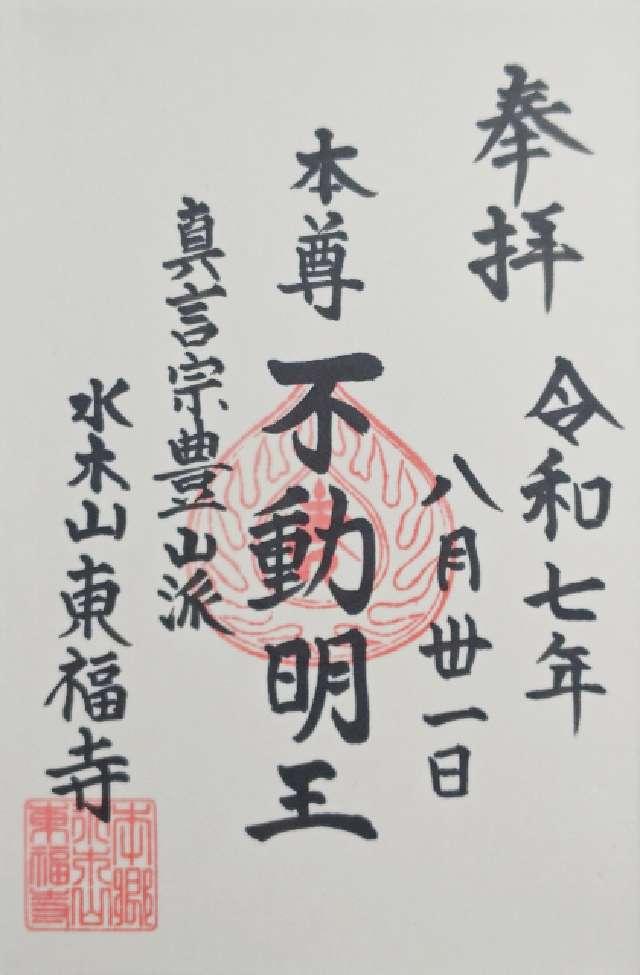 奉拝
令和七年
八月丗一日
本尊
不動明王
真言宗豊山派
水木山東福寺
本郷
水木山
東福寺